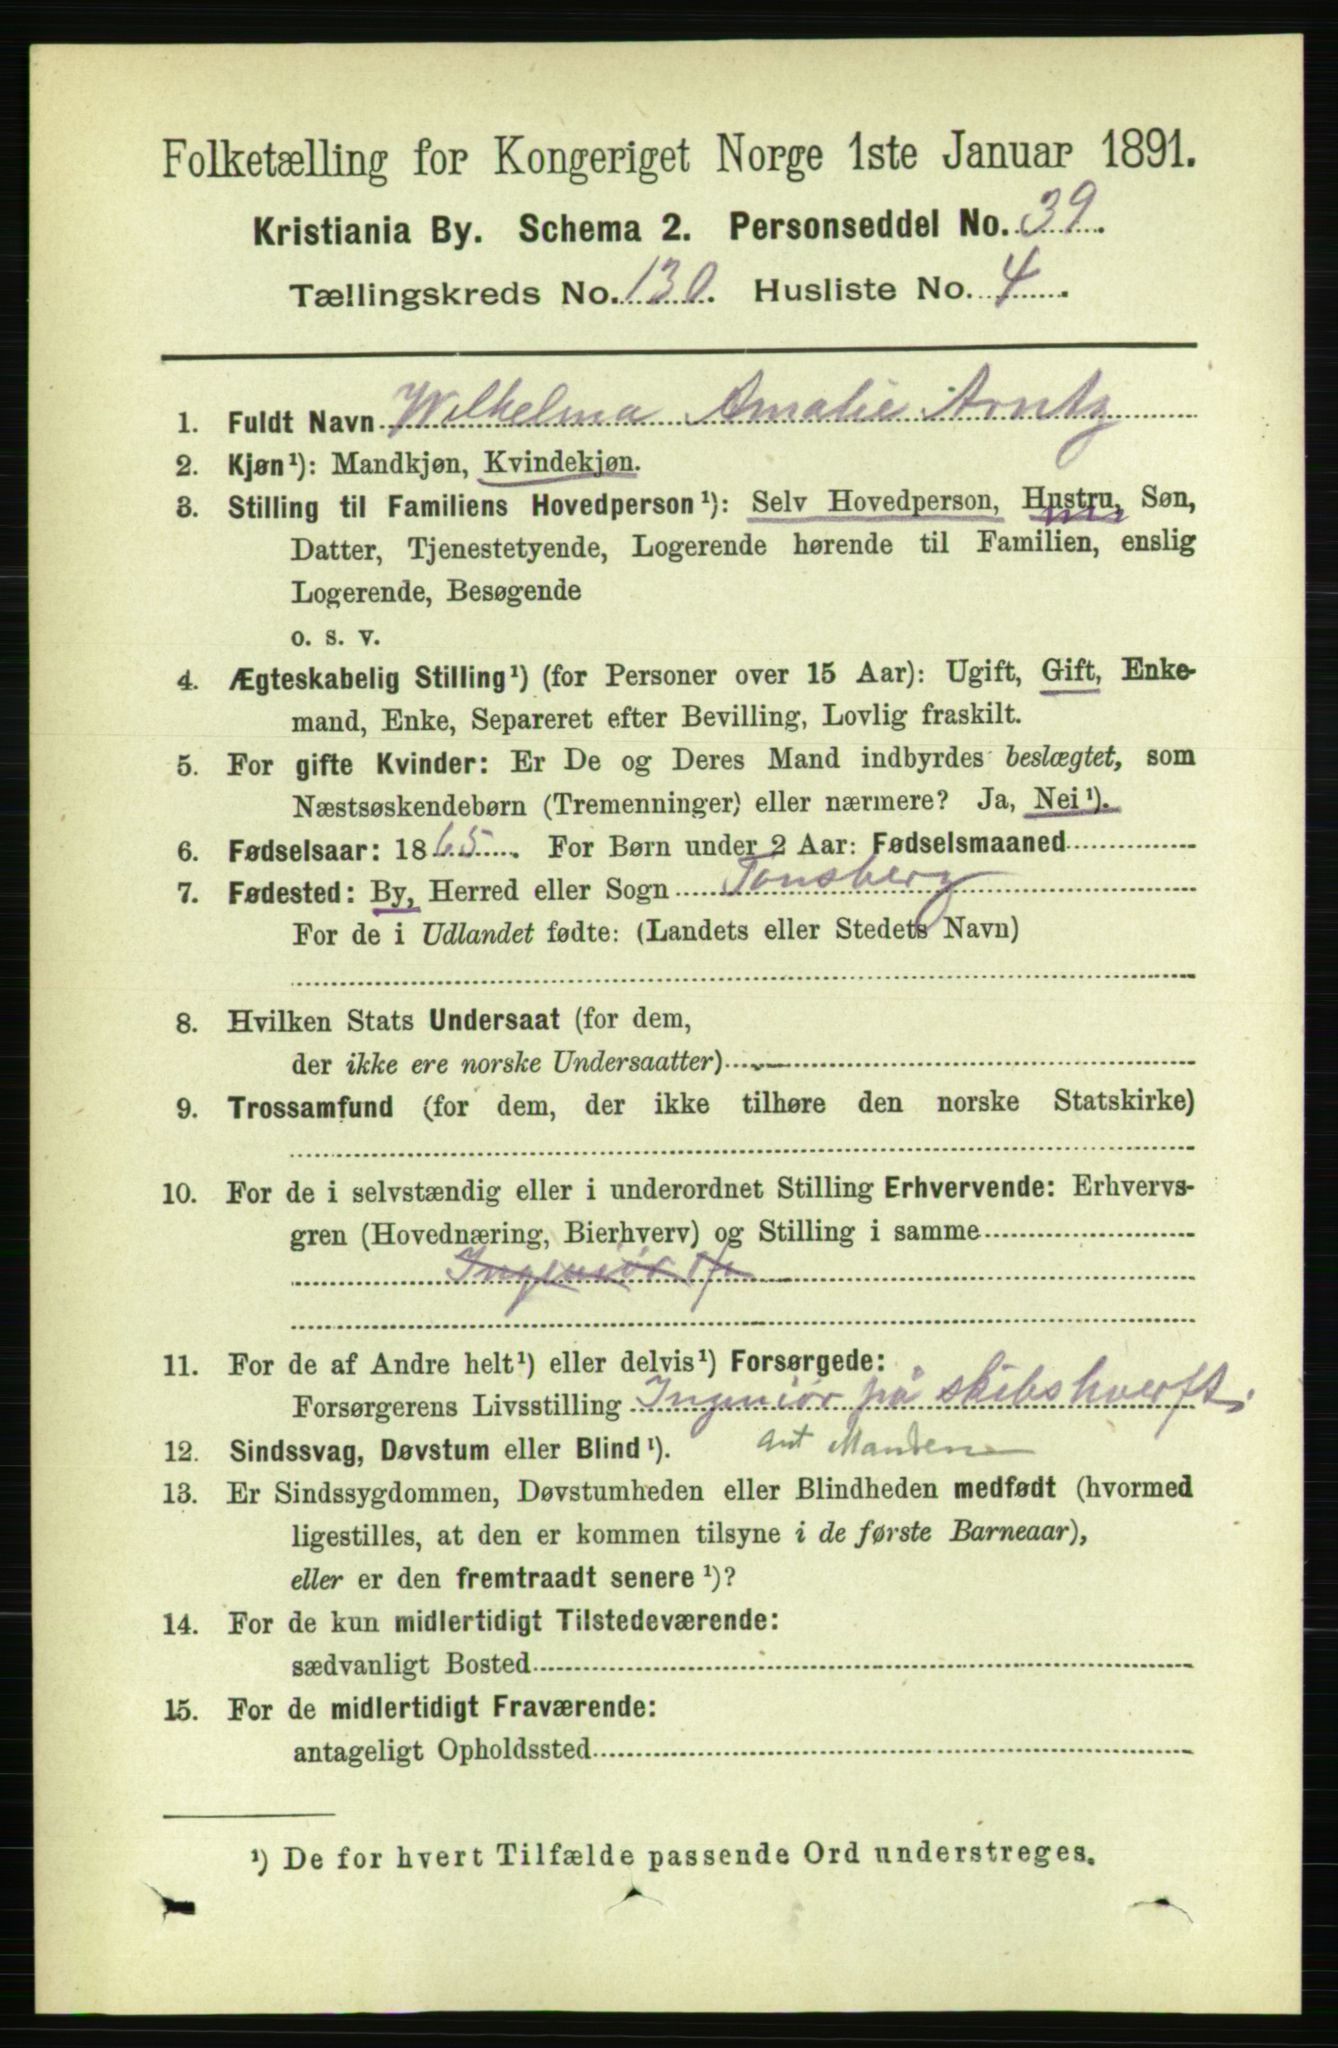 Folketælling for Kongeriget Norge 1ste Januar 1891.
Kristiania By. Schema 2. Personseddel No. 39.
Tællingskreds No. 130. Husliste No. 4.
1. Fuldt Navn Wilhelma Amalie Arntz
2. Kjøn¹): Mandkjøn, Kvindekjøn.
3. Stilling til Familiens Hovedperson¹): Selv Hovedperson, Hustru, Søn,
Datter, Tjenestetyende, Logerende hørende til Familien, enslig
Logerende, Besøgende
o. s. v.
4. Ægteskabelig Stilling¹) (for Personer over 15 Aar): Ugift, Gift, Enke-
mand, Enke, Separeret efter Bevilling, Lovlig fraskilt.
5. For gifte Kvinder: Er De og Deres Mand indbyrdes beslægtet, som
Næstsøskendebørn (Tremenninger) eller nærmere? Ja, Nei¹).
6. Fødselsaar: 1865. For Børn under 2 Aar: Fødselsmaaned
7. Fødested: By, Herred eller Sogn Tønsberg
For de i Udlandet fødte: (Landets eller Stedets Navn)
8. Hvilken Stats Undersaat (for dem,
der ikke ere norske Undersaatter)
9. Trossamfund (for dem, der ikke tilhøre den norske Statskirke)
10. For de i selvstændig eller i underordnet Stilling Erhvervende: Erhvervs-
gren (Hovednæring, Bierhverv) og Stilling i samme
Ingeniør
11. For de af Andre helt¹) eller delvis¹) Forsørgede:
Forsørgerens Livsstilling Ingeniør på skibshverft.
12. Sindssvag, Døvstum eller Blind¹). ant Manden
13. Er Sindssygdommen, Døvstumheden eller Blindheden medfødt (hvormed
ligestilles, at den er kommen tilsyne i de første Barneaar),
eller er den fremtraadt senere¹)?
14. For de kun midlertidigt Tilstedeværende:
sædvanligt Bosted
15. For de midlertidigt Fraværende:
antageligt Opholdssted
¹) De for hvert Tilfælde passende Ord understreges.